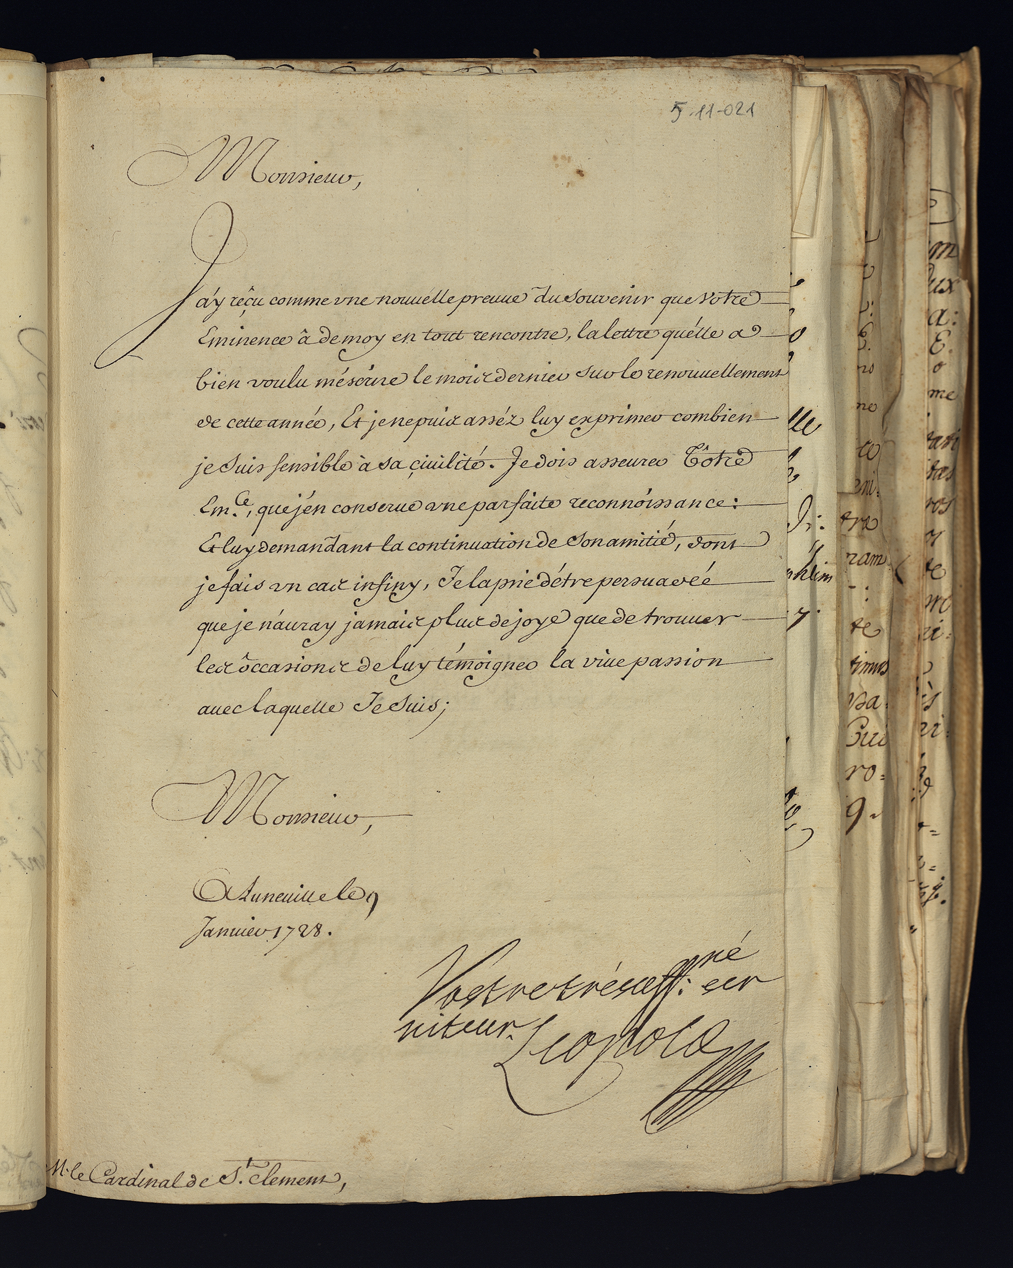 5-11-021
Monsieur,
J'ay reçu comme vne nouuelle preuue du souvenir que Votre
Eminence â de moy en tout rencontre, la lettre qu'elle a
bien voulu m'éscrire le mois dernier sur le renouuellement
de cette année, Et je ne puis asséz luy exprimer combien
je suis sensible à sa çiuilité. Je dois asseurer Vôtre
Em.ce, que j'én conserue vne parfaite reconnoissance:
Et luy demandant la continuation de son amitié, dont
je fais vn cas infiny, Je la prie d'étre persuadéé
que je n'auray jamais plus de joye que de trouuer
les ôccasions de luy témoigner la viue passion
auec laquelle Je suis;
Monsieur,
A Luneuille le 9
Januier 1728.
Vostre trés aff:né ser
uiteur.
Leopold
M. le Cardinal de St. Clement,